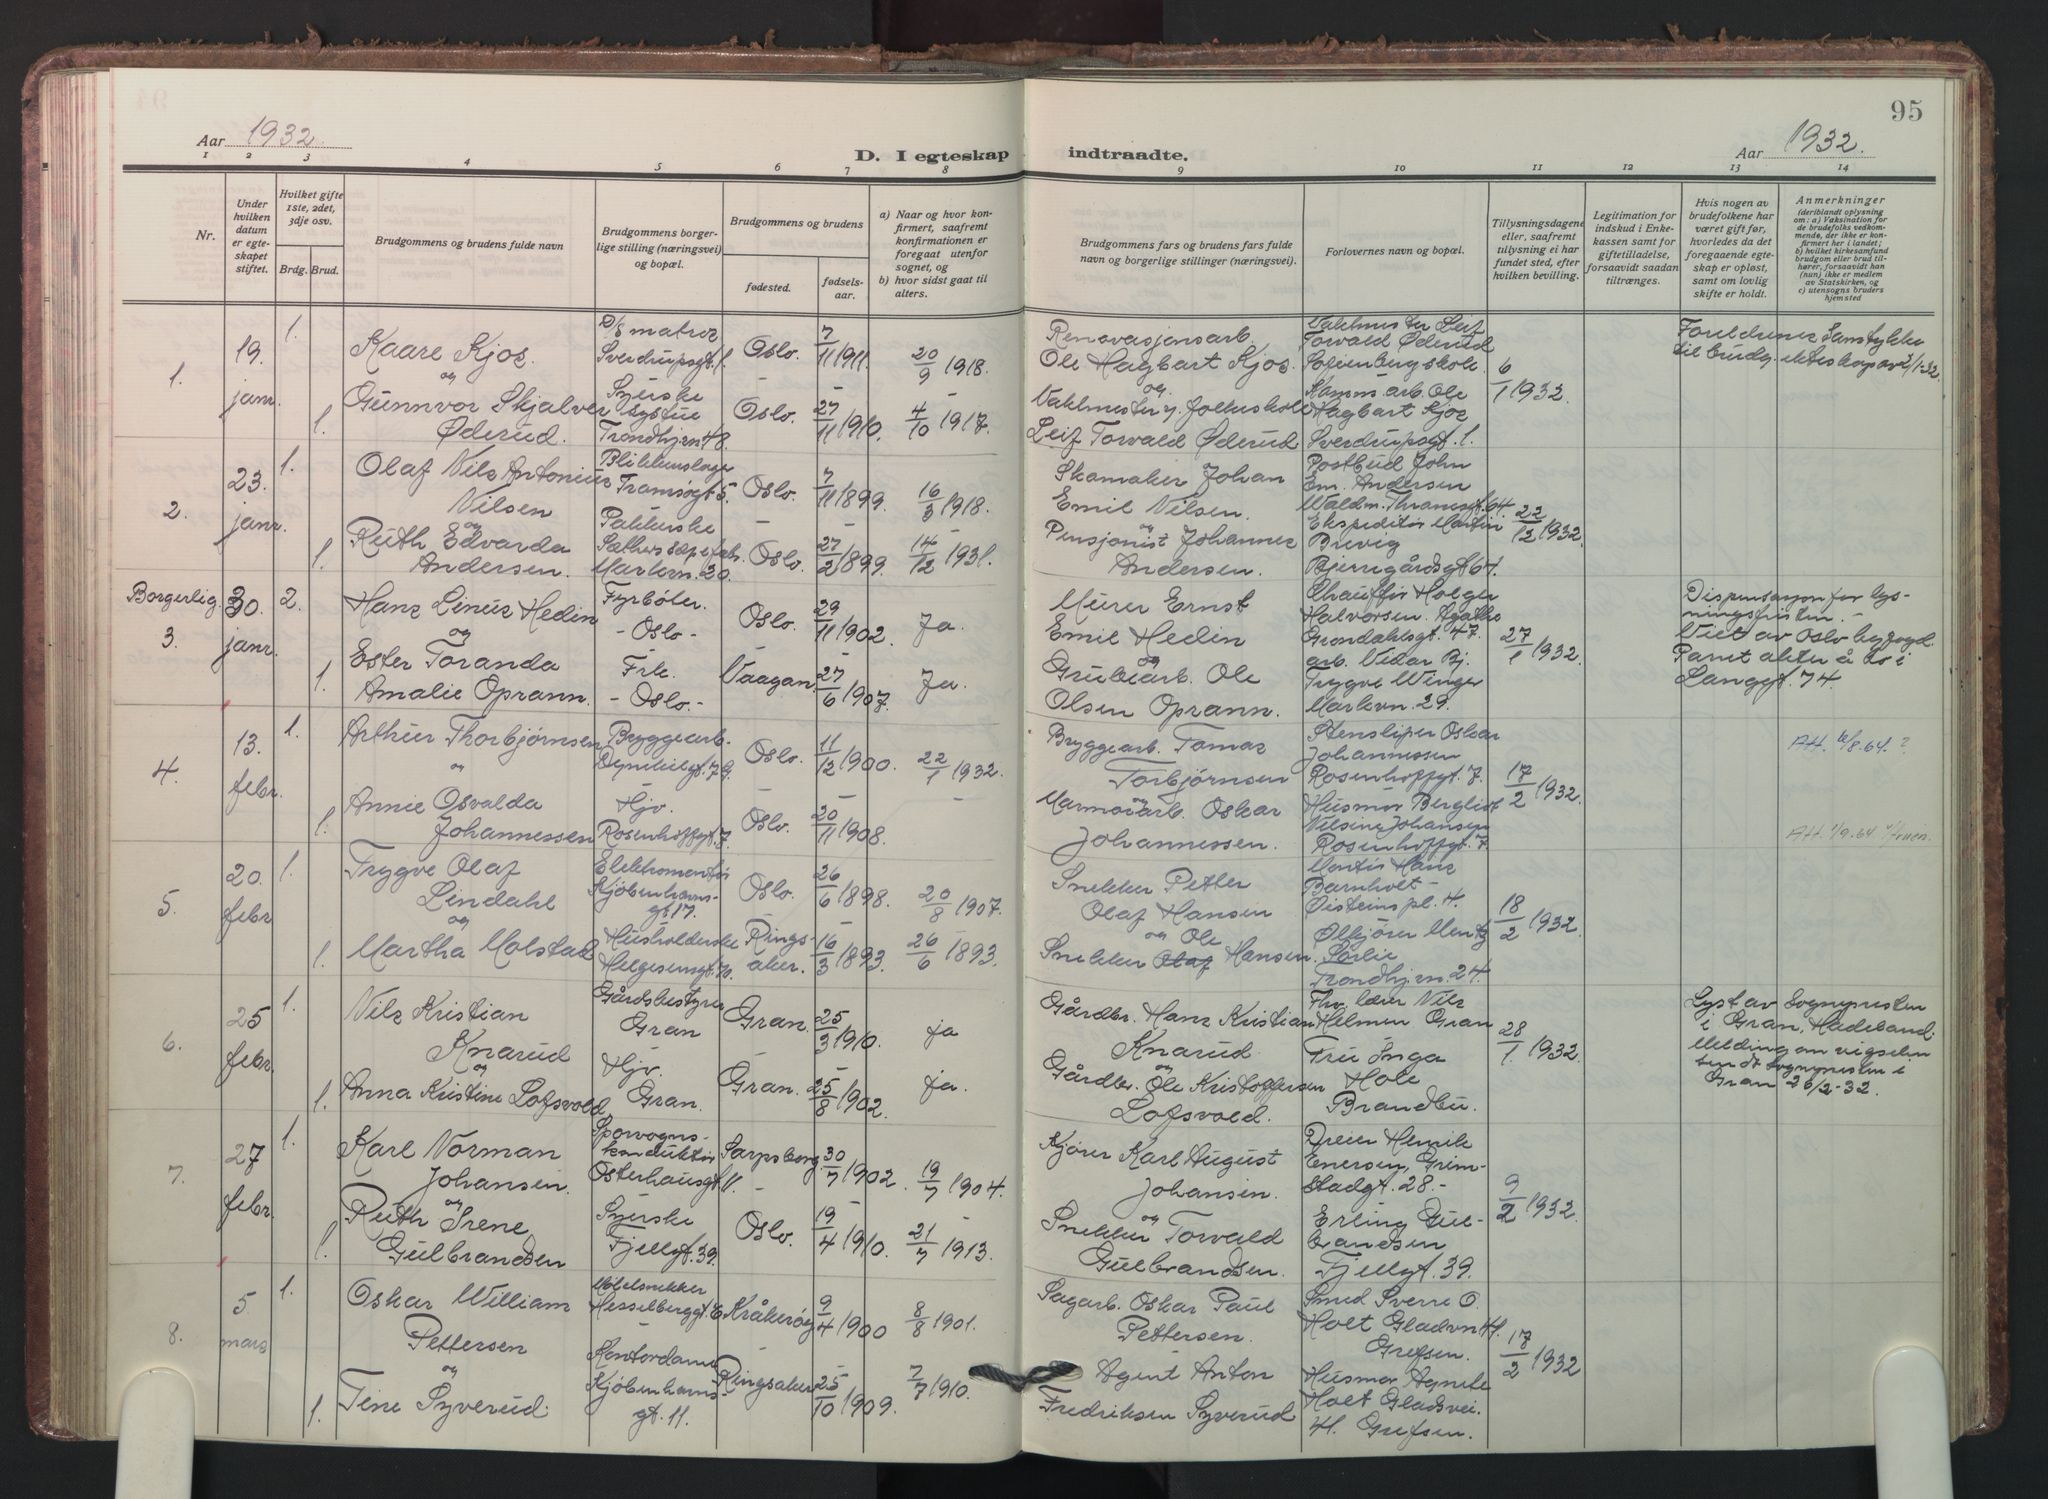 95
Aar 1932.
D. I egteskap
indtraadte.
Aar 1932.
1 2 3 4 5 6 7 8 9 10 11 12 13 14
Nr.
Under hvilken datum er egteskapet stiftet.
Hvilket gifte 1ste, 2det, 3dje osv.
Brdg. Brud.
Brudgommens og brudens fulde navn
Brudgommens borgerlige stilling (næringsvei) og bopæl.
Brudgommens og brudens
fødested.
fødselsaar.
a) Naar og hvor konfirmert, saafremt konfirmationen er foregaat utenfor sognet, og
b) hvor sidst gaat til alters.
Brudgommens fars og brudens fars fulde navn og borgerlige stillinger (næringsvei).
Forlovernes navn og bopæl.
Tillysningsdagene eller, saafremt tillysning ei har fundet sted, efter hvilken bevilling.
Legitimation for indskud i Enkekassen samt for giftetilladelse, forsaavidt saadan tiltrænges.
Hvis nogen av brudefolkene har været gift før, hvorledes da det foregaaende egteskap er opløst, samt om lovlig skifte er holdt.
Anmerkninger
(deriblandt oplysning om: a) Vaksination for de brudefolks vedkommende, der ikke er konfirmert her i landet; b) hvilket kirkesamfund brudgom eller brud tilhører, forsaavidt han (hun) ikke er medlem av Statskirken, og c) utensogns bruders hjemsted
1.
19. janr.
1.
Kaare Kjos.
og
D/S matros
Sverdrupsgt. 1.
Oslo.
7/11 1911.
20/9 1918.
Renovasjonsarb.
Ole Hagbart Kjos.
og
Vaktmester Leif
Torvald Øderud
Sofienbergskole.
6/1 1932.
Foreldrenes Samtykke
til brudg. ekteskap av /1-32.
1.
Gunnvor Skjalver
Øderud.
Syerske
Trondhjm. 48.
Oslo.
27/11 1910.
4/10 1917.
Vaktmester v. folkeskole
Leif Torvald Øderud
arb. Ole
Hagbart Kjos
Sverdrupsgt. 1.
2.
23. janr.
1.
Olaf Nils Antonius
Nilsen
og
Blikkenslager
Tromsøgt. 5.
Oslo.
7/11 1899.
16/3 1918.
Skomaker Johan
Emil Nilsen.
og
Postbud John
Em. Andersen
Waldm. Thranesgt. 64
22/12 1932.
1.
Ruth Edvarda
Andersen.
Pakkerske
Sæthers sæpefab.
Markvn. 20.
Oslo.
27/2 1899.
14/12 1931.
Pensjonist Johannes
Andersen.
Ekspeditør Martin
Brevig
Bjerregårdsgt 64.
Borgerlig.
3.
30. janr.
2.
Hans Linus Hedin
og
Fyrbøter.
- Oslo -
Oslo.
29/11 1902.
Ja.
Murer Ernst
Emil Hedin
og
Chauffør Holger
Halvorsen. Agathe
Grøndahlsgt. 47.
27/1 1932.
Dispensasjon for lys-
ningsfristen. -
Viet av Oslo byfogd.
Paret akter å bo i
Langgt. 74.
1.
Ester Toranda
Amalie Oprann.
Frk.
- Oslo. -
Vaagan.
27/6 1907.
Ja.
Grubearb. Ole
Olsen Oprann.
arb. Vidar Bj.
Trygve Winger
Markvn. 29.
4.
13. febr.
1.
Arthur Thorbjørnsen
og
Bryggearb.
Dynekilgt. 7
Oslo.
11/12 1900.
22/1 1932.
Bryggearb. Tomas
Torbjørnsen
og
Stensliper Oskar
Johannessen
Rosenhoffgt. 7.
17/2 1932.
Att. /8.64. ?
1.
Annie Osvalda
Johannessen
Hjv.
Rosenhoffgt. 7.
Oslo.
20/11 1908.
Marmorarb. Oskar
Johannessen.
Husmor Bergliot
Nilsine Johansen
Rosenhoffgt. 7.
Att. 1/9.64
5.
20. febr
1.
Trygve Olaf
Lindahl
og
Elektromontør
Kjøbenhavns-
gt 17.
Oslo.
26/6 1898.
20/8 1907.
Snekker Petter
Olaf Hansen
og
Montør Hans
Barnholt -
Øisteinspl. 4.
18/2 1932.
1.
Martha Molstad
Husholderske
Helgesensgt.
Rings-
aker.
16/3 1893.
26/6 1893.
Ole
Snekker Olaf Hansen.
Ølkjører Mentz
Sørlie
Trondhjm. 24.
6.
25 febr.
1.
Nils Kristian
Knarud
og
Gårdsbestyrer
Gran
Gran.
25/3 1910.
ja
Gårdbr. Hans Kristian
Knarud.
og
Fhv. lærer Nils
Helmen Gran
28/1. 1932.
Lyst av Sognepresten
i Gran, Hadeland.
Melding om vigselen
sendt sognepresten i
Gran 26/2-32.
1.
Anna Kristine Lofsvold.
Hjv.
Gran.
Gran.
25/8 1902.
ja
Gårdbr. Ole Kristoffersen
Lofsvold.
Fru Inga
Hole
Brandbu.
7.
27 febr.
1.
Karl Norman
Johansen.
og
Sporvogns-
konduktør
Osterhausgt 11.
Sarpsborg.
30/7 1902.
19/7 1904.
Kjører Karl August
Johansen.
og
Dreier Henrik
Enersen, Grim-
stadgt. 28. -
9/2 1932.
1.
Ruth Irene
Gulbrandsen
Syerske
Fjellgt. 39.
Oslo.
19/4 1910.
21/7 1913.
Snekker Torvald
Gulbrandsen.
Erling Gul-
brandsen
Fjellgt. 39.
8.
5. mars
1.
Oskar William
Pettersen
og
Møbelsnekker
Hesselberggt.
Kråkerøy
9/4 1900
8/8 1901.
Sagarb. Oskar Paul
Pettersen.
Smed Sverre O.
Holt Gladvn 41.
Grefsen.
17/2 1932
1.
Tine Syverud.
Kontordame
Kjøbenhavns-
gt. 11.
Ringsaker
25/10 1909.
7/7 1910.
Agent Anton
Fredriksen Syverud
Husmor Agnete
Holt Gladsvei.
41. Grefsen.